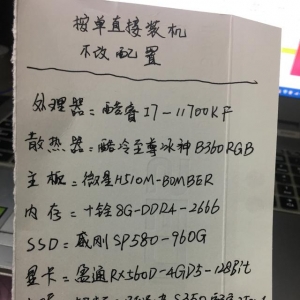 按单直接装机
不改配置
处理器=酷睿I7-11700KF
散热器=酷冷至尊冰神B360RGB
主板=微星H510M-BOMBER
内存=十铨8G-DDR4-2666
SSD=威刚SP580-960G
显卡=盈通RX560D-4GD5-128Bit